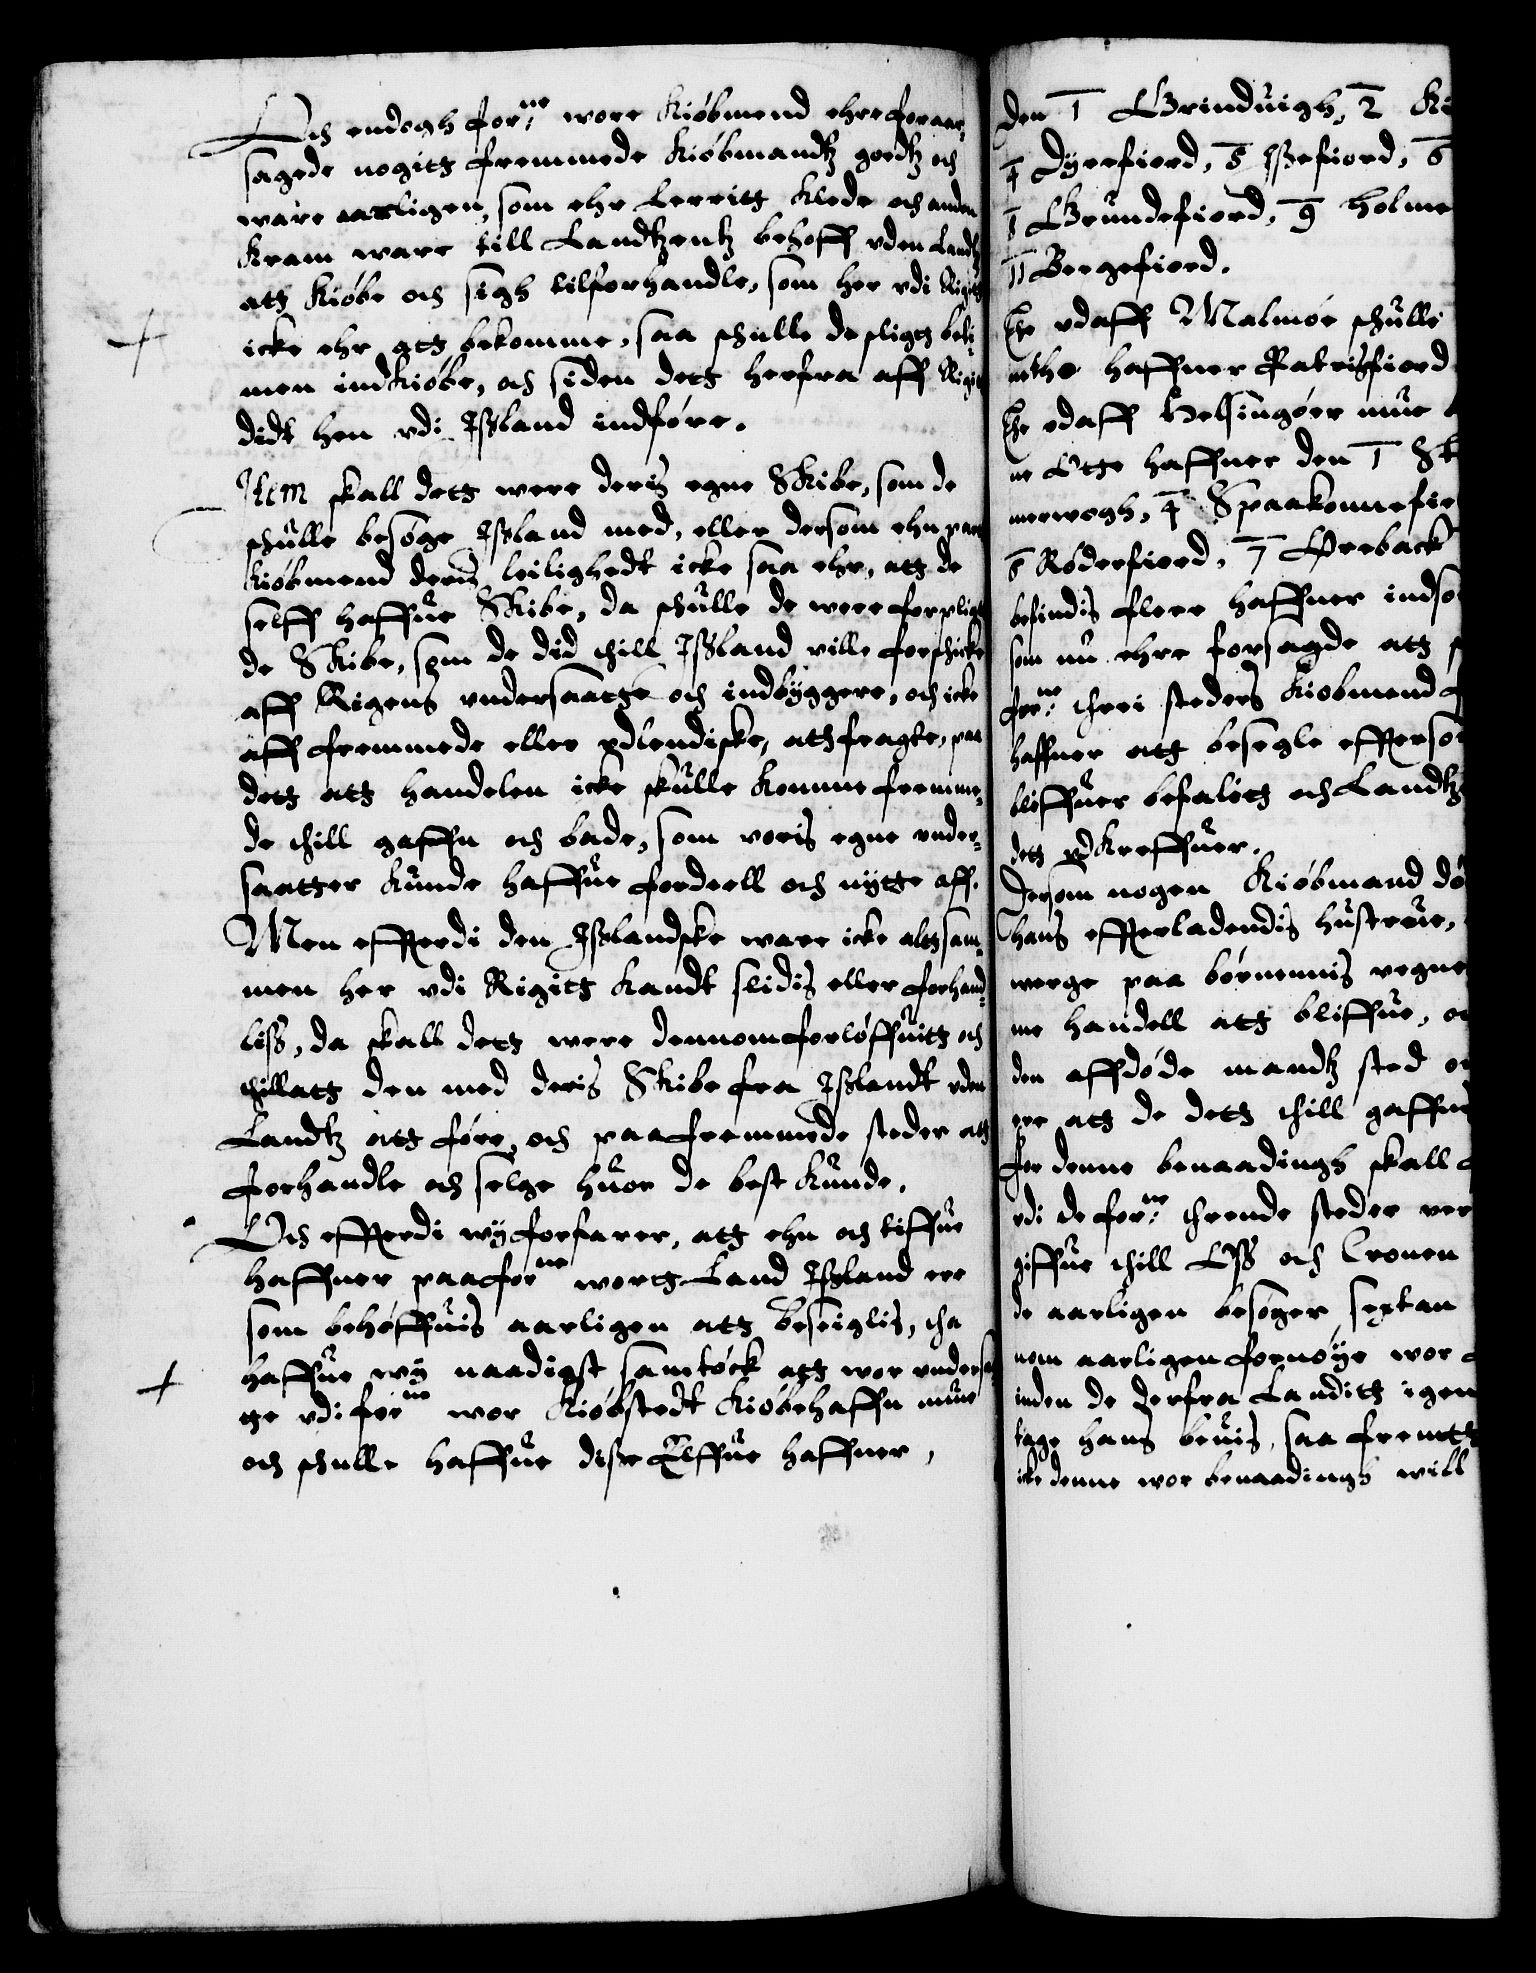 Och endogh for:ne wore Kiöbmend ehre foraar,
sagede nogitt fremmede Kiöbmandtz goedtz och
ware aarligen, som ehr Lerritt Klede och anden
Kram ware till Landtzentz behoff uden Landtz
att Kiöbe och sigh tilforhandle, som her udi Rigitt
icke ehr att bekomme, saa schulle de sligtt beki,
men indkiöbe, och siden dett herfra aff Rigitt
didt hen udi Jszland indföre.
Jtem skall dett were deris egne Skibe, som de
schulle besöge Jszland med, eller dersom ehn part
Kiöbmend deris leilighedt icke saa ehr, att de
selff haffue Skibe, da schulle de were forpligt
de Skibe, som de did thill Jszland ville forschicke
aff Rigens undersaatte och indbyggere, och icke
aff fremmede eller udlendiske, att fragte, paa
dett att handelen icke skulle komme fremme,
de thill gaffn och bade, som voris egne under,
saatter kunde haffue fordeell och nytte aff.
Men efftterdi den Jszlandske ware icke altt sam,
men her udi Rigitt kandt slidis eller forhand,
lisz, da skall dett were dennom forlöffuitt och
thillatt den med deris Skibe fra Jszlandt uden
Landtz att före, och paa fremmede steder att
forhandle och selge huor de best kunde.
Och effterdi wy forfarer, att ehn och tiffue
haffner paa for:ne wortt Land Jszland ere
som behöffuis aarligen att beseiglis, tha
haffue wy naadigst samtöck att wor undersaa
tte udi for:ne wor Kiöbstedt Kiöbehaffn mue
och schulle haffue disze Elffue haffner,
Den 1 Grinduigh, 2 Ki
4 Dyrefiord, 5 Jszefiord, 6
8 Grundefiord, 9 Holme
11 Bergefiord.
The udaff Malmöe schulle
nthe haffner Patrisfiord
The udaff Helsingöer mue
ne Otte haffner den 1 Sk
merwogh, 4 Spaakonnefio
6 Röderfiord, 7 Öreback
befindis flere haffner indso
som nu ehre forsagde att
for:ne threi steders Kiöbmend
haffner att besegle efftersom
bliffuer befalitt och Landtz
dett udkreffuer.
Dersom nogen Kiöbmand dö
Thans effterladendis hustrue,
werge paa börnennis wegne
me handell att bliffue, oc
den affdöde mandtz sted oc
ere att de dett thill gaffn
For denne benaadingh skall
udi de for:ne thrende steder ver
giffue thill Osz och Cronen
de aarligen besöger, sextan
nom aarligen fornöye wor
inden de derfra Landitt igen
tage hans beuis, saa fremtt
icke denne wor benaadingh will